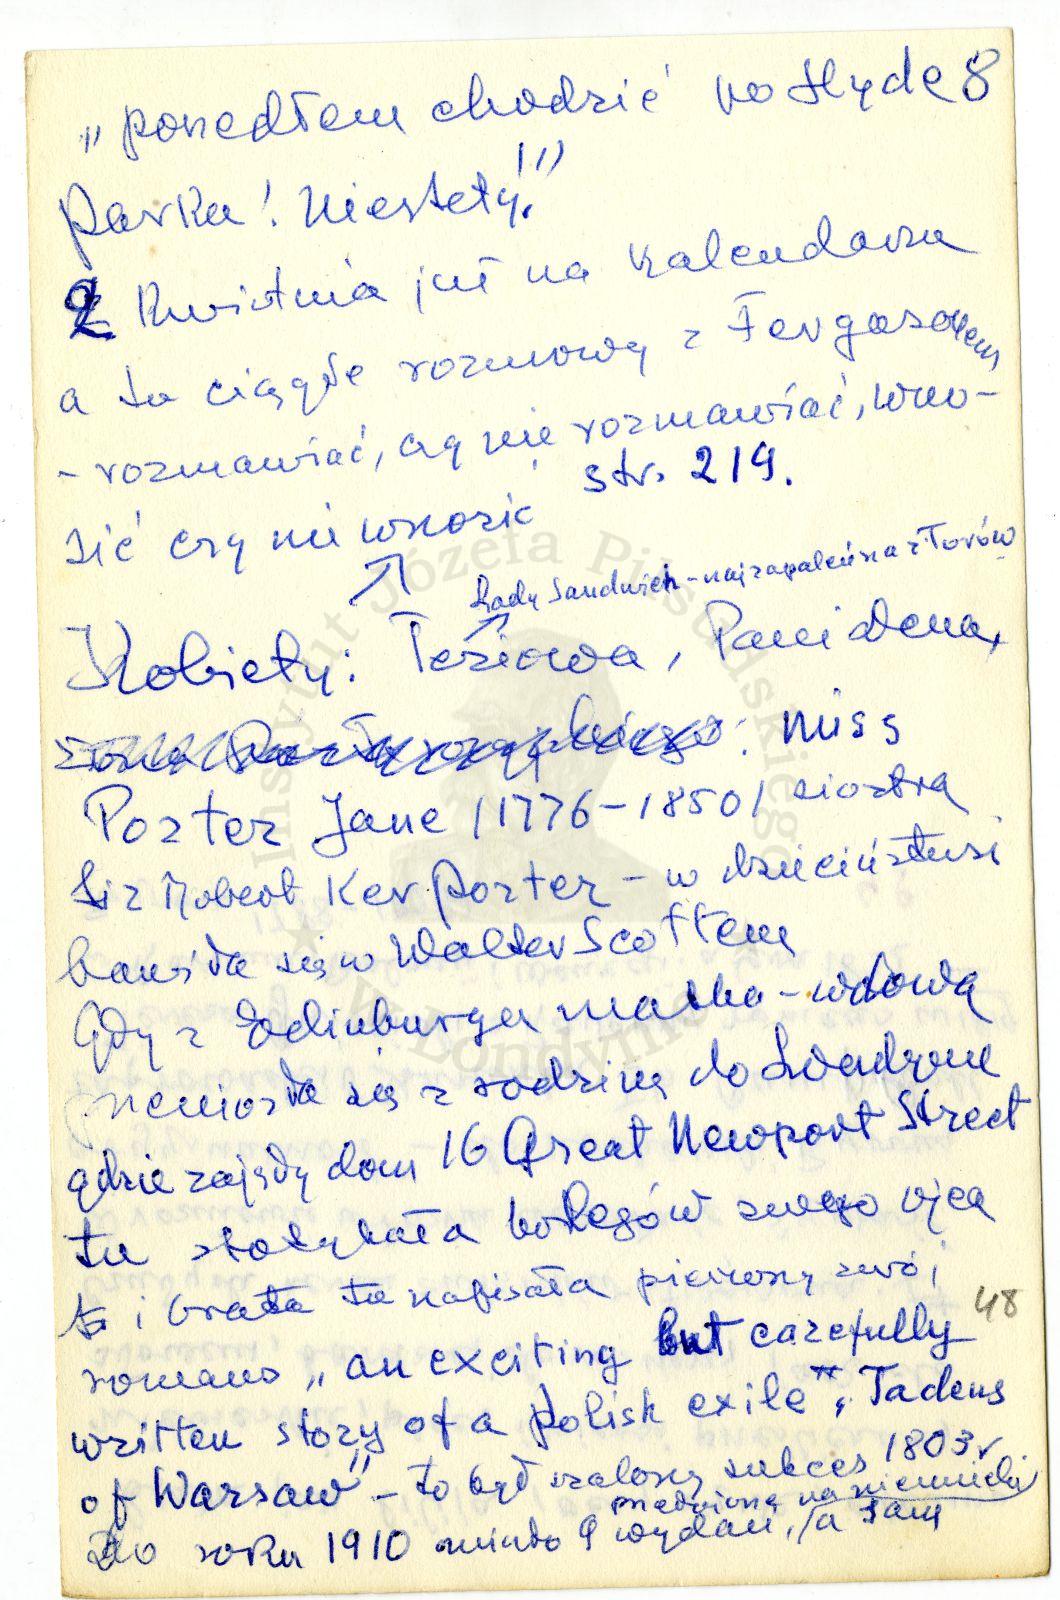 „poszedłem chodzić po Hyde 8
Parku! Niestety!"
2 kwietnia już na kalendarzu
a tu ciągłe rozmowy z Fergusonem
- rozmawiać, czy nie rozmawiać, wno-
str. 219.
sić czy nie wnosić
Lady Sandwich - najzapaleńsza z Torów
Kobiety: Teściowa, Pani Dena,
: Miss
Porter Jane /1776-1850/ siostra
Sir Robert Ker Porter - w dzieciństwie
bawiła się w Walter Scottem
Gdy z Edinburga matka - wdowa
przeniosła się z rodziną do Londynu
gdzie zajęły dom 16 Great Newport Street
tu spotykała kolegów swego ojca
i brata tu napisała pierwszy swój
48
romans „an exciting but carefully
written story of a polish exile", Tadeus
of Warsaw" - to był szalony sukces 1803 r
na niemiecki
Do roku 1910 miało 9 wydań, /a sam
Instytut Józefa Piłsudskiego
w Londynie